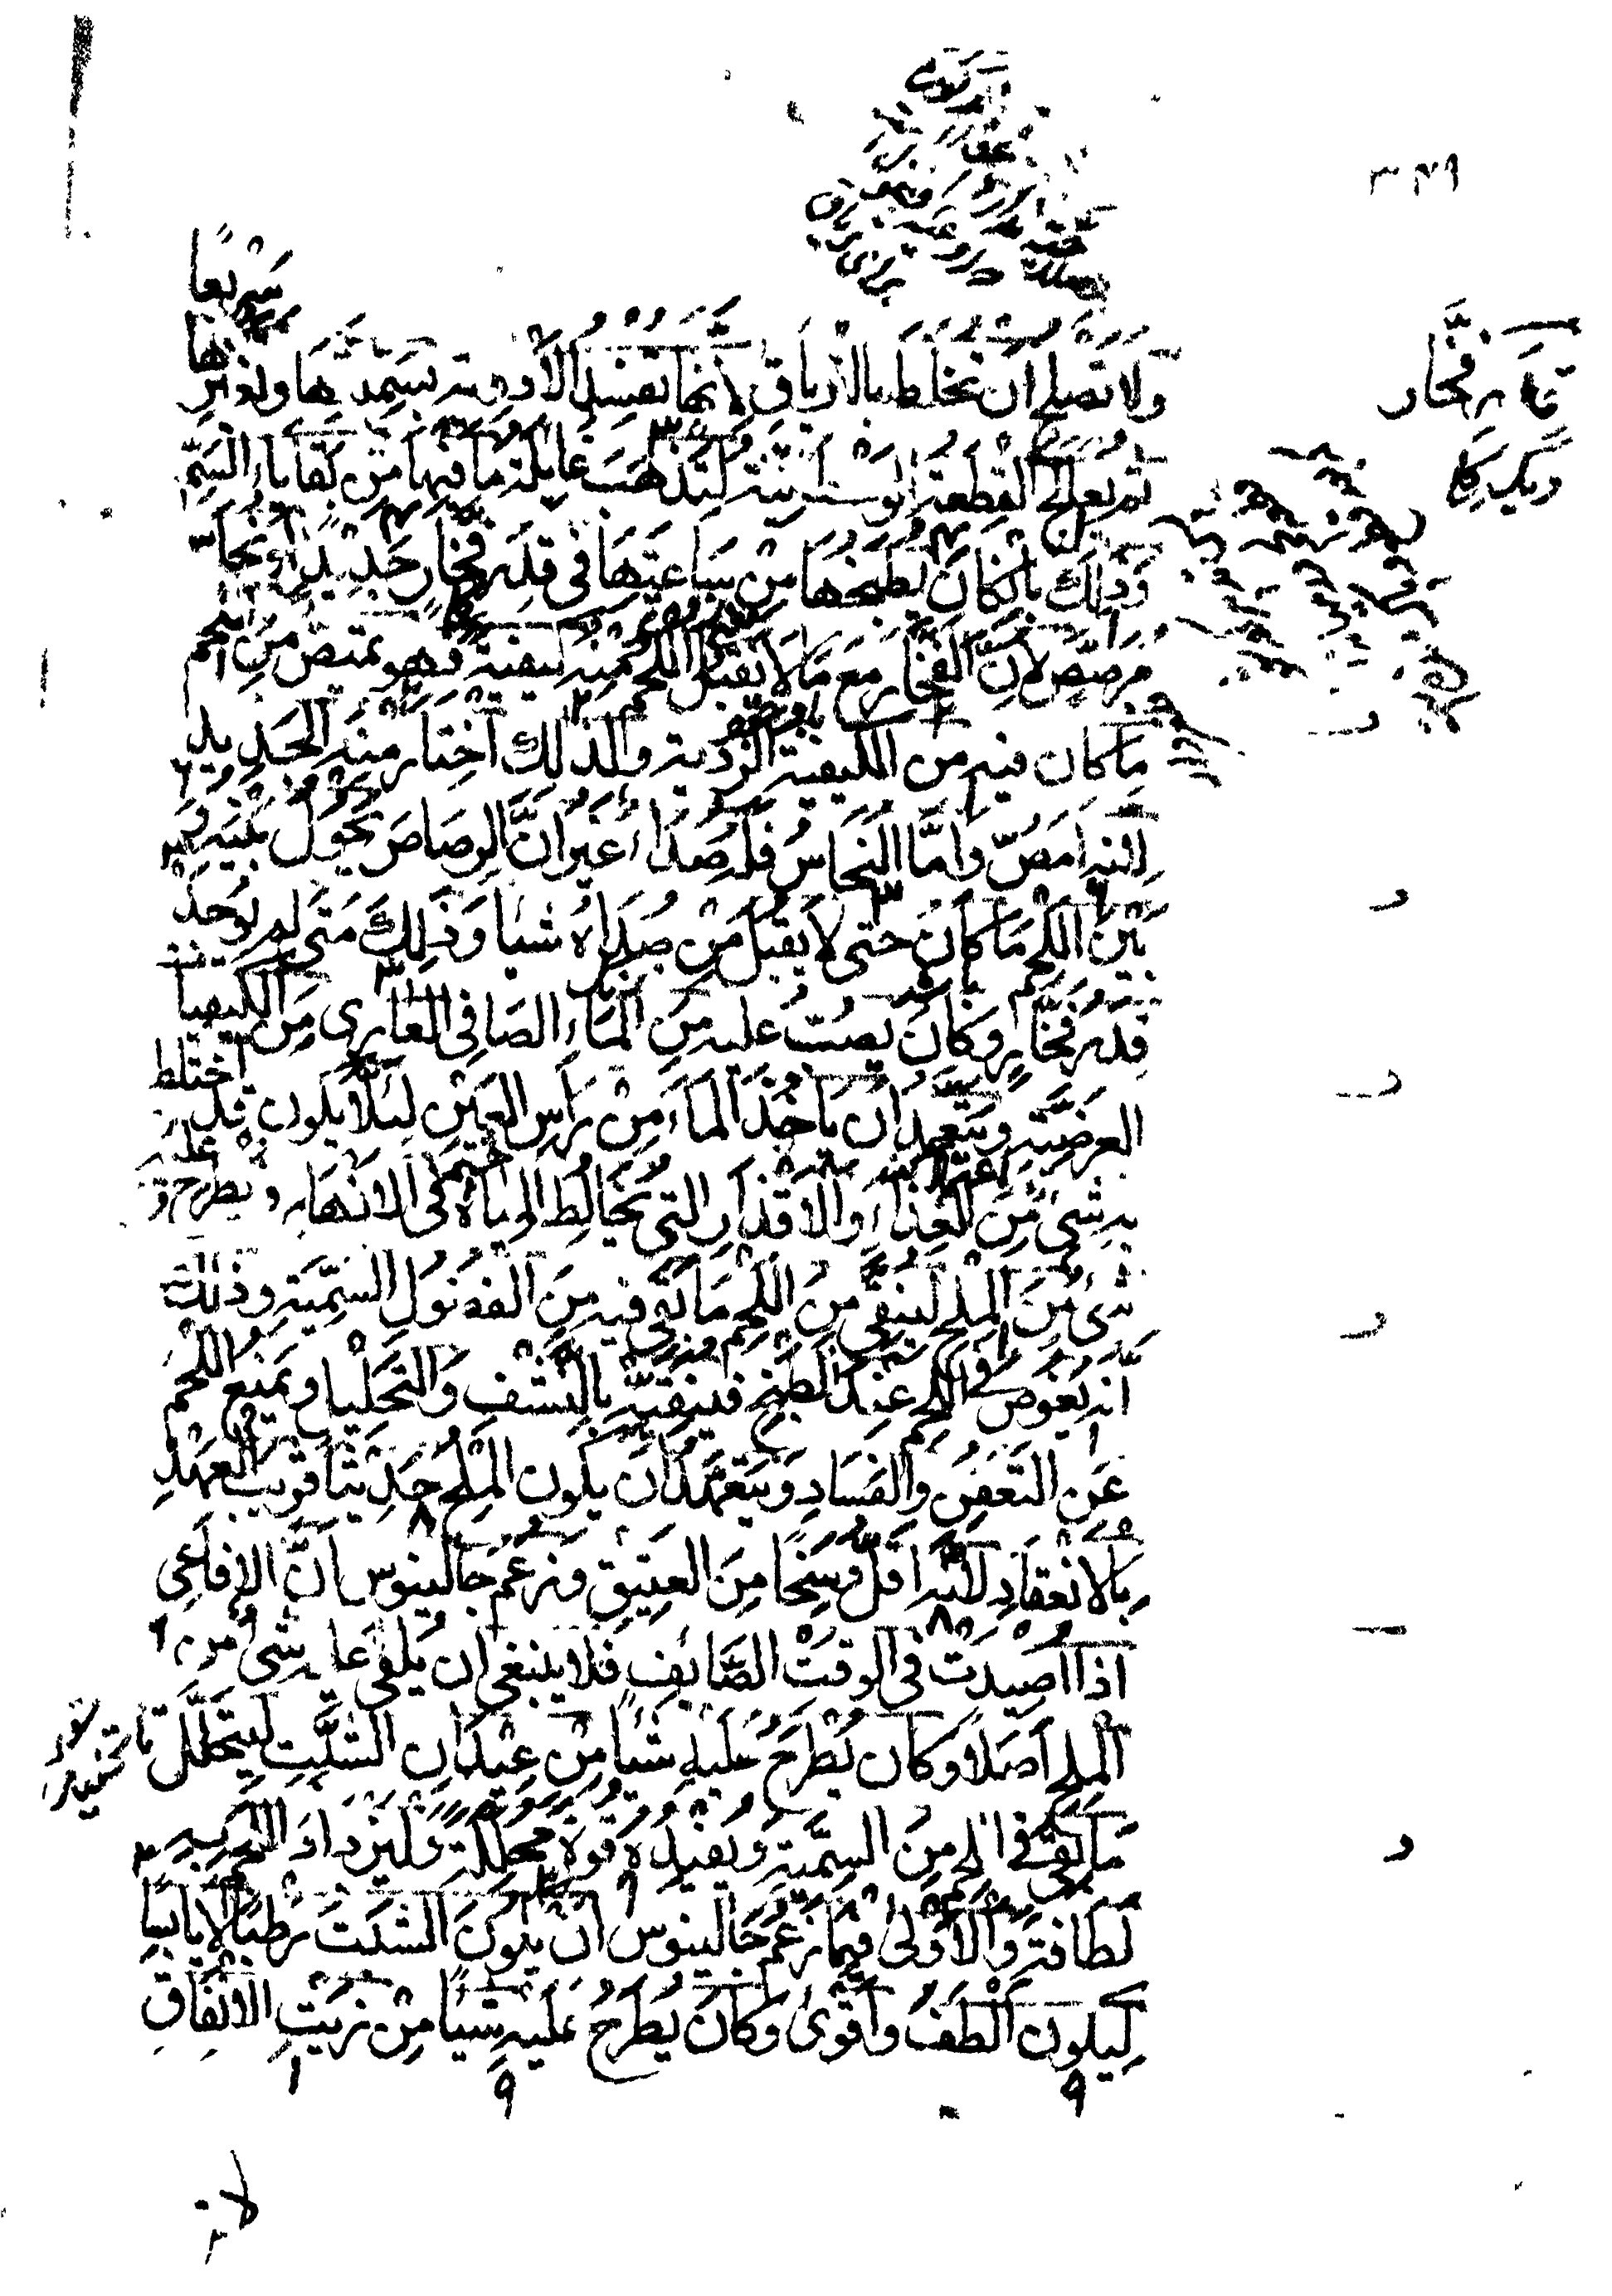 ٣٤٩
سريعًا
ولا تصلح ان تخلط بالادرياق لانها تفسد الادوية بسميتها وتغيرها
ثم يعالج القطعة الوسطانية لتذهب غايلة ما فيها من بقايا السم
وذلك بان كان يطبخها من ساعتها في قدر فخار جديد او نحاس
مرصص لان الفخار مع ما لا يقبل اللحم منه كيفية فهو يمتص من اللحم
ما كان فيه من الكيفية الردية ولذلك اختار منه الجديد
لانه امص واما النحاس فله صداء غير ان الرصاص يحول بينه و
بين اللحم ما كان حتى لا يقبل من صداه شيا وذلك متى لم يوجد
قدر فخار وكان يصب عليه من الماء الصافي العاري من الكيفيات
العرضية ويتعهد ان ياخذ الماء من راس العين ليلا يكون قد اختلط
به شي من الغذاء والاقذار التي تخالط المياه في الانهار ويطرح عليه
شي من الملح لينقي من اللحم ما بقي فيه من الفضول السمية وذلك
انه يغوص في اللحم عند الطبخ فينقيه بالنشف والتحليل ويمنع اللحم
عن التعفن والفساد ويتعهد ان يكون الملح حديثا قريب العهد
بالانعقاد لانه اقل وسخا من العتيق وزعم جالينوس ان الافاعي
اذا اصيدت في الوقت الصايف فلا ينبغي ان يلقي عليه شي من
الملح اصلا وكان يطرح عليه شيا من عيدان الشبت ليتحلل
ما بقي في اللحم من السمية ويفيده قوة محللة وليزداد اللحم به
لطافة والاولى فيما زعم جالينوس ان يكون الشبت رطبا لا يابسا
ليكون الطف واقوى وكان يطرح عليه شيا من زيت الانفاق
قدر فخار
ديك كلي